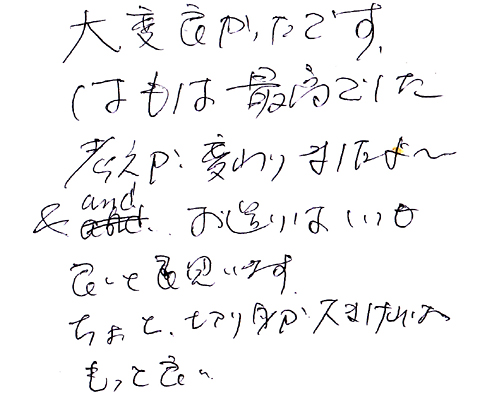 大変良かったです。
はもは最高でした
考えが変わりましたよ〜
& and お造りはいつも
良いと思います。
ちょっと、切り身が大きければ
もっと良い